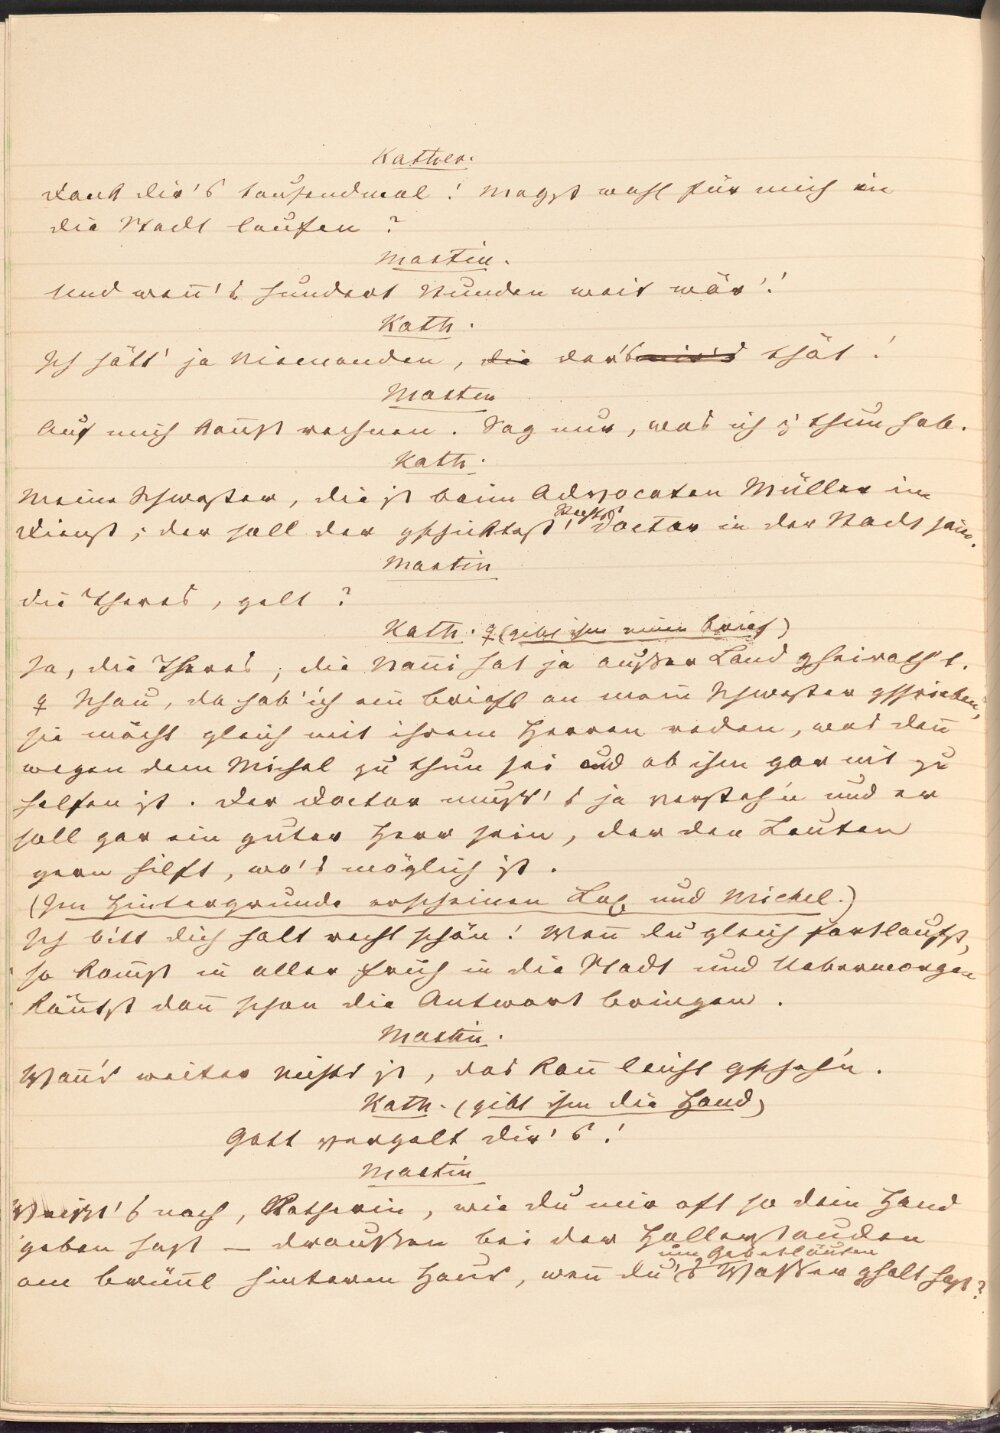 Kather.
Dank dir's tausendmal! Magst wohl für mich in
die Stadt laufen?
Martin.
Und wenn's hundert Stunden weit wär'!
Kath.
Ich hätt' ja Niemanden, die der's thät!
Martin
Auf mich kannst rechnen. Sag nur, was ich z' thun hab.
Kath.
Meine Schwester, die ist beim Advocaten Müller im
Dienst; der soll der gschickteste Rechtsdoctor in der Stadt sein.
Martin
die Theres, gelt?
Kath. (gibt ihm einen Brief)
Ja, die Theres; die Nanni hat ja außer Land gheirath't.
Schau, da hab' ich ein Briefl an mein Schwester gschrieben,
sie möcht gleich mit ihrem Herren reden, was denn
wegen dem Michel zu thun sei und ob ihm gar nit zu
helfen ist. Der Doctor muß's ja versteh'n und er
soll gar ein guter Herr sein, der den Leuten
gern hilft, wo's möglich ist.
(Im Hintergrunde erscheinen und Michel.)
Ich bitt dich halt recht schön! Wenn du gleich fortlaufst,
so kommst in aller Früh in die Stadt und Uebermorgen
könntst dann schon die Antwort bringen.
Martin.
Wann's weiter nichts ist, das kann leicht gscheh'n.
Kath. (gibt ihm die Hand)
Gott vergelt dir's!
Martin
Weißt's noch, Katherin, wie du mir oft so dein Hand
geben hast – draußen bei der Hollerstauden
am Brünnl hinterm Haus, wenn du um Gebetläuten 's Wasser gholt hast?